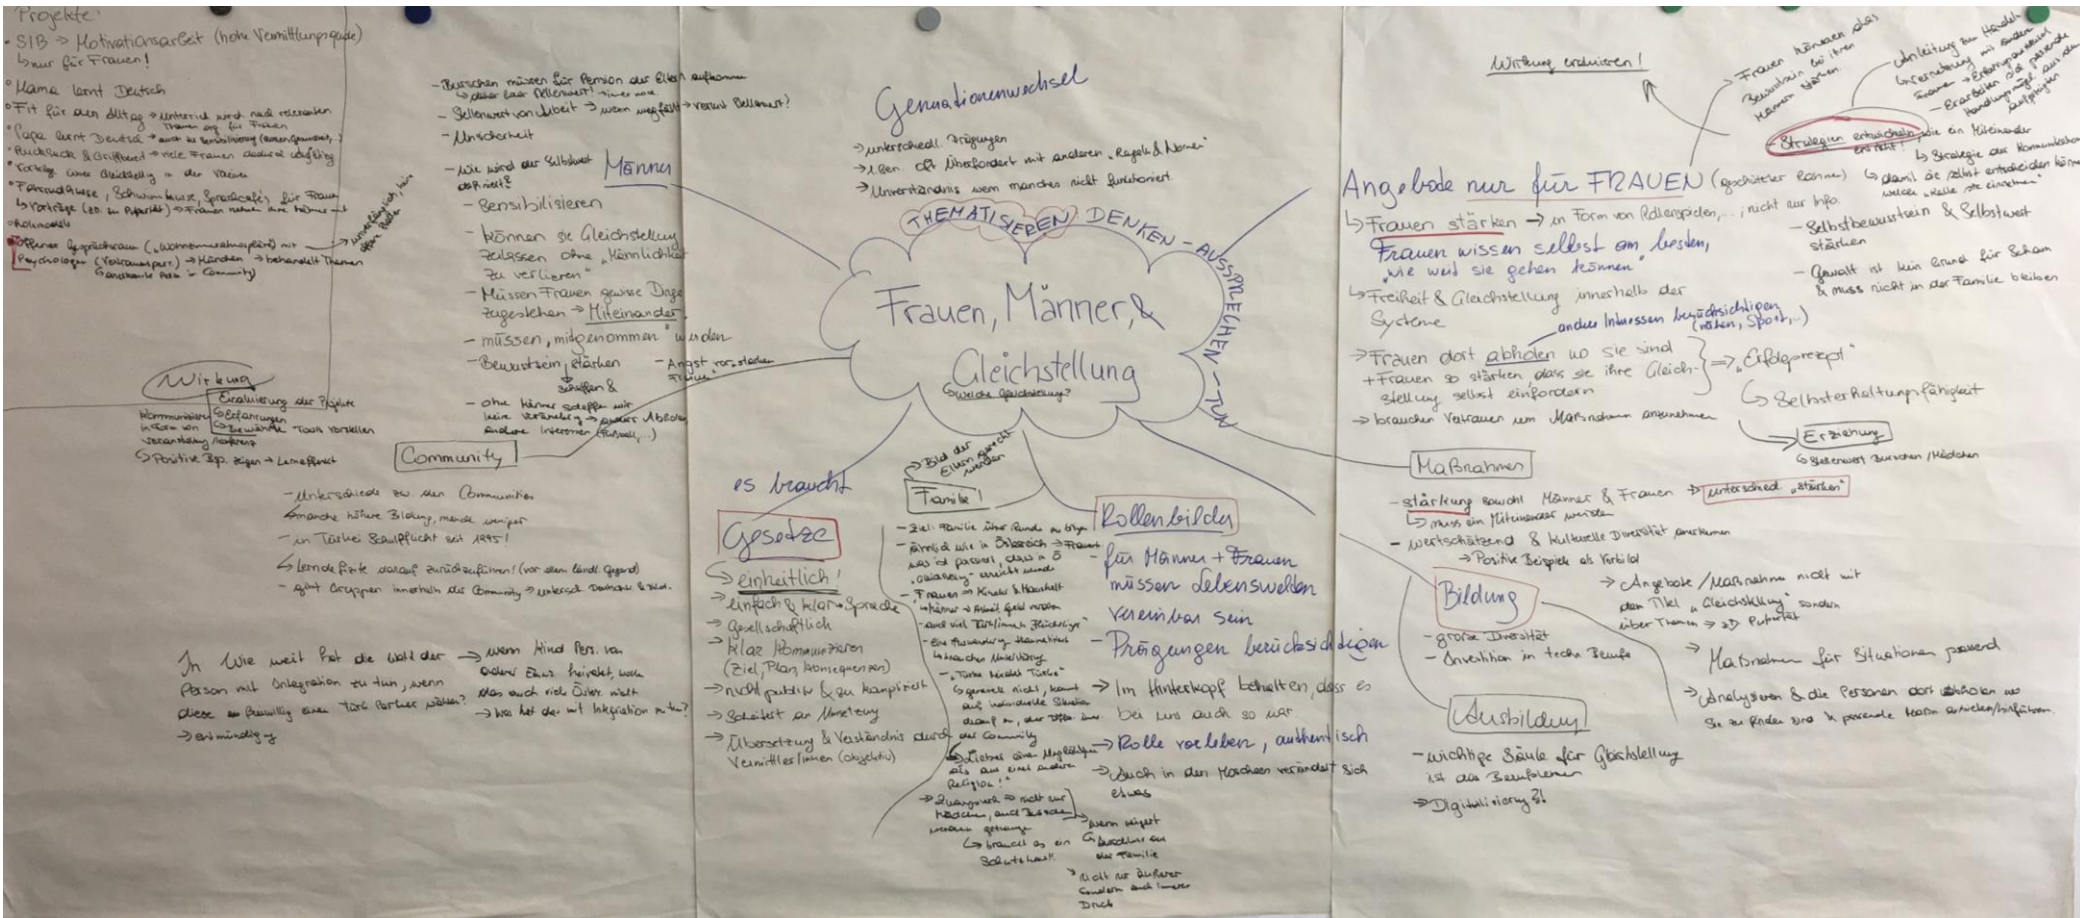 Projekte:
• SIB → Motivationsarbeit (hohe Vermittlungsquote)
↳ nur für Frauen!
• Mama lernt Deutsch
• Fit für den Alltag → Unterricht wird nach relevanten
Themen für Frauen
• Papa lernt Deutsch → auch zur Sensibilisierung
• Rucksack & Griffbereit → viele Frauen dadurch
• Vorträge über Gleichstellung in den Vereinen
• Fahrradkurse, Schwimmkurse, Sprachcafés für Frauen
↳ Vorträge (zB. zu Pubertät) → Frauen nehmen ihre Männer mit
• Rolemodels
• Offener Gesprächsraum („Wohnzimmeratmosphäre“) mit
Psychologen (Vertrauensperson) → Männchen → behandelt Themen
in Community)
Wirkung
Evaluierung der Projekte
↳ Erfahrungen
↳ Bewährte Tools vorstellen
Kommunizieren
in Form von
Veranstaltung/Konferenz
↳ Positive Bsp. zeigen → Lerneffekt
- Burschen müssen für Pension der Eltern aufkommen
↳ daher hoher Stellenwert!
- Stellenwert von Arbeit → wenn wegfällt → verliert Stellenwert?
- Unsicherheit
- Wie wird der Selbstwert
definiert?
Männer
- Sensibilisieren
- können sie Gleichstellung
zulassen ohne „Männlichkeit
zu verlieren“
- Müssen Frauen gewisse Dinge
zugestehen → Miteinander
- müssen „mitgenommen“ werden
- Bewusstsein stärken
schaffen &
- Angst vor „starken
Frauen“
- ohne Männer schaffen wir
keine Veränderung → anders Abholen
andere Interessen (Fußball,...)
Community
- Unterschiede zw. den Communities
↳ manche höhere Bildung, manche weniger
- in Türkei Schulpflicht seit 1995!
↳ Lerndefizite darauf zurückzuführen! (vor allem ländl. Gegend)
- gibt Gruppen innerhalb der Community →
In Wie weit hat die Wahl der
Person mit Integration zu tun, wenn
diese freiwillig einen türk Partner wählen?
→ entmündigung
→ wenn Kind Pers. von
anderer Ethn. heiratet, wollen
das auch viele Österr. nicht
→ Was hat das mit Integration zu tun?
Generationenwechsel
→ unterschiedl. Prägungen
→ 1. Gen. oft überfordert mit anderen „Regeln & Normen“
→ Unverständnis wenn manches nicht funktioniert.
THEMATISIEREN DENKEN - AUSSPRECHEN - TUN
Frauen, Männer, &
Gleichstellung
↳ welche Gleichstellung?
es braucht
Gesetze
↳ einheitlich!
→ einfach & klar → Sprache
→ Gesellschaftlich
→ klar kommunizieren
(Ziel, Plan, Konsequenzen)
→ nicht publik & zu kompliziert
→ Scheitert an Umsetzung
→ Übersetzung & Verständnis durch
Vermittler/innen (objektiv)
→ Bild der
Eltern gerecht
werden
Familie!
- Ziel: Familie über Runde zu bringen
- ähnlich wie in Österreich → Frauen
was ist passiert, dass in Ö
erreicht wurde
- Frauen → Kinder & Haushalt
↳ Männer → Arbeit, Geld verdienen
- „Türke heiratet Türke“
↳ generell nicht, kommt
auf individuelle Situation
drauf an,
der Community
↳ „Lieber einen Ungläubigen
als aus einer anderen
Religion!“
→ Zwangsehe → nicht nur
Mädchen, auch Burschen
werden gezwungen
↳ braucht es ein
Schutzhaus!!
→ wenn weigert
↳ Ausschluss aus
der Familie
→ nicht nur äußerer
sondern auch innerer
Druck
Rollenbilder
- für Männer + Frauen
müssen Lebenswelten
vereinbar sein
- Prägungen berücksichtigen
→ Im Hinterkopf behalten, dass es
bei uns auch so war
→ Rolle vorleben, authentisch
→ Auch in den Moscheen verändert sich
etwas
Wirkung evaluieren!
Frauen können das
Bewusstsein bei ihren
Männern stärken.
- Anleitung zum Handeln
- Erarbeiten
- Strategien entwickeln, wie ein Miteinander
erreicht!
↳ Strategie der Kommunikation
↳ damit sie selbst entscheiden können
welche „Rolle sie einnehmen“
Angebote nur für FRAUEN (geschützter Rahmen)
↳ Frauen stärken → in Form von Rollenspielen,..., nicht nur Info.
Frauen wissen selbst am besten,
„wie weit sie gehen können“
↳ Freiheit & Gleichstellung innerhalb der
Systeme
- Selbstbewusstsein & Selbstwert
stärken
- Gewalt ist kein Grund für Scham
& muss nicht in der Familie bleiben
andere Interessen berücksichtigen
(nähen, Sport,..)
→ Frauen dort abholen wo sie sind
+ Frauen so stärken, dass sie ihre Gleich-
stellung selbst einfordern
⇒ „Erfolgsrezept“
↳ Selbsterhaltungsfähigkeit
→ brauchen Vertrauen um Maßnahmen anzunehmen
Erziehung
↳ Stellenwert Burschen/Mädchen
Maßnahmen
- stärkung sowohl Männer & Frauen → unterschied. „stärken“
↳ muss ein Miteinander werden
- wertschätzend & kulturelle Diversität anerkennen
→ Positive Beispiele als Vorbild
→ Angebote/Maßnahmen nicht mit
dem Titel „Gleichstellung“ sondern
über Themen → zB Pubertät
→ Maßnahmen für Situationen passend
→ Analysieren & die Personen dort abholen wo
sie zu finden sind & passende Maßn. entwickeln/hinführen.
Bildung
- große Diversität
- Investition in techn. Berufe
Ausbildung
- wichtige Säule für Gleichstellung
ist das Berufsleben
→ Digitalisierung?!